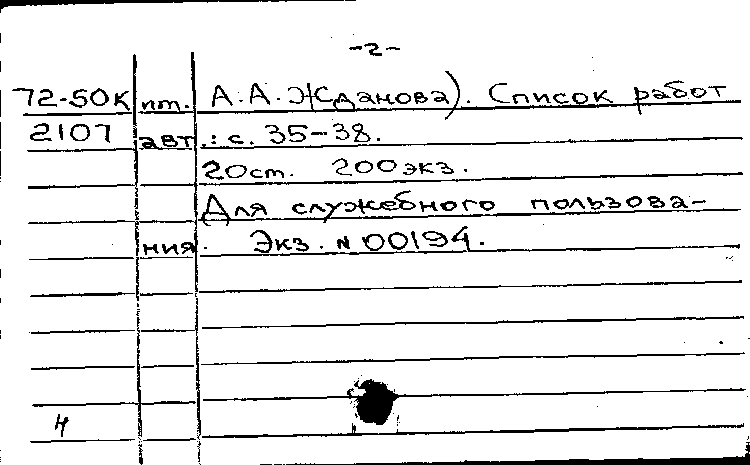 -2-
72-50К им. А.А.Жданова). Список работ
2107 авт.: с. 35-38.
20 ст. 200 экз.
Для служебного пользова-
ния. Экз. № 00194.